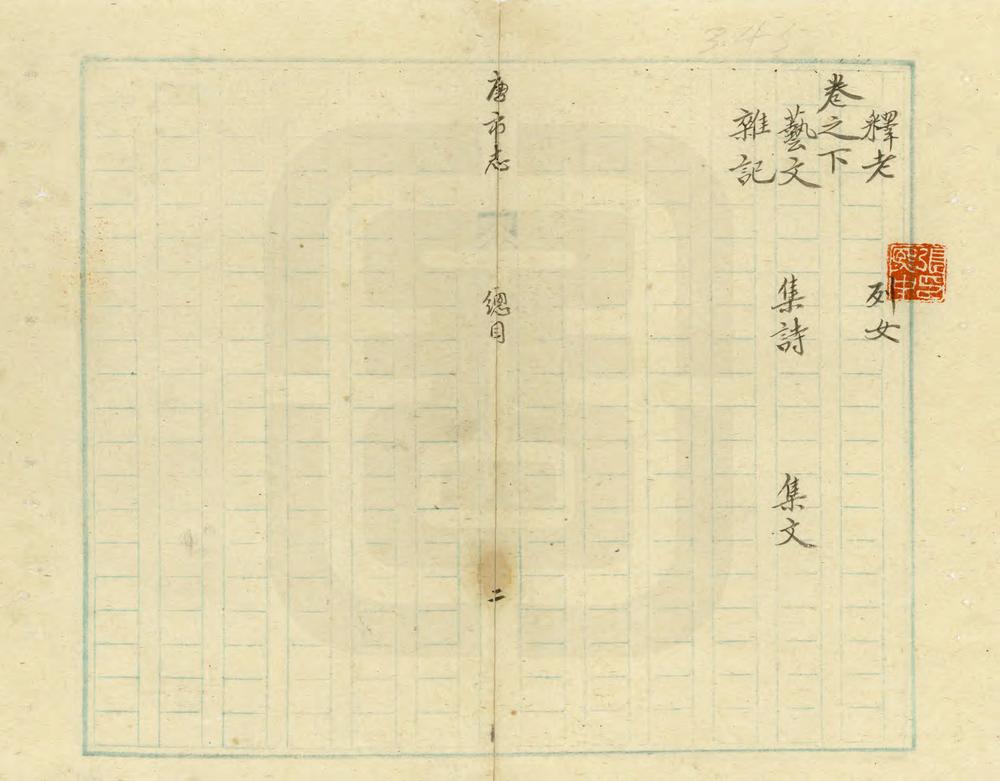 釋老 列女
卷之下
藝文 集詩 集文
雜記
唐市志 總目 二